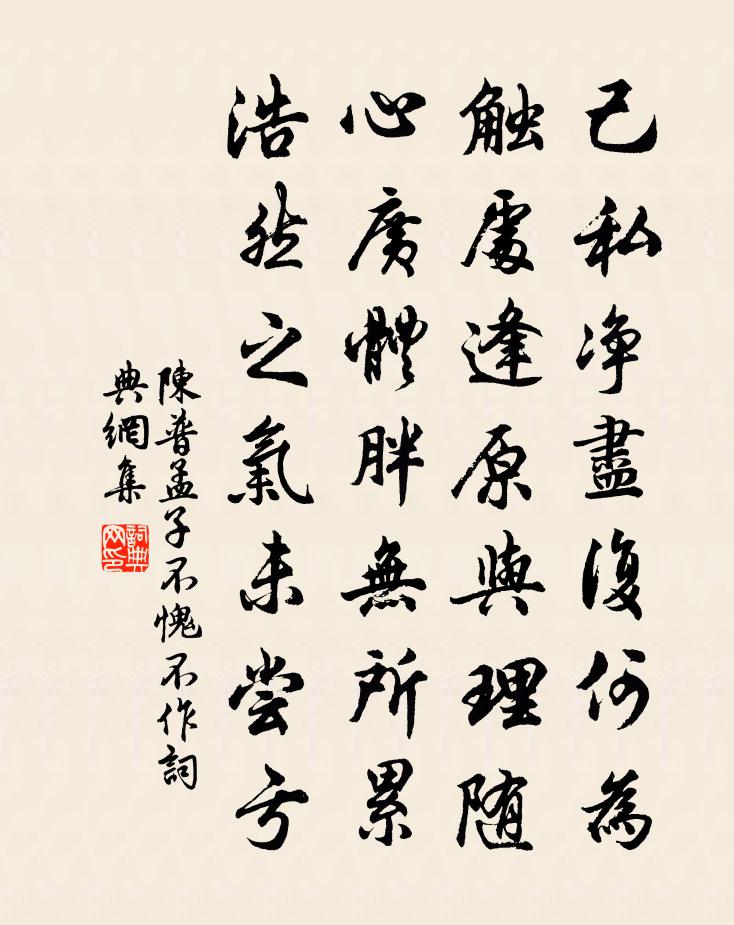 己私净盡復何為
触處逢原與理随
心廣體胖無所累
浩然之氣未尝亏
陳普孟子不愧不作詞
典網集
詞典
网印